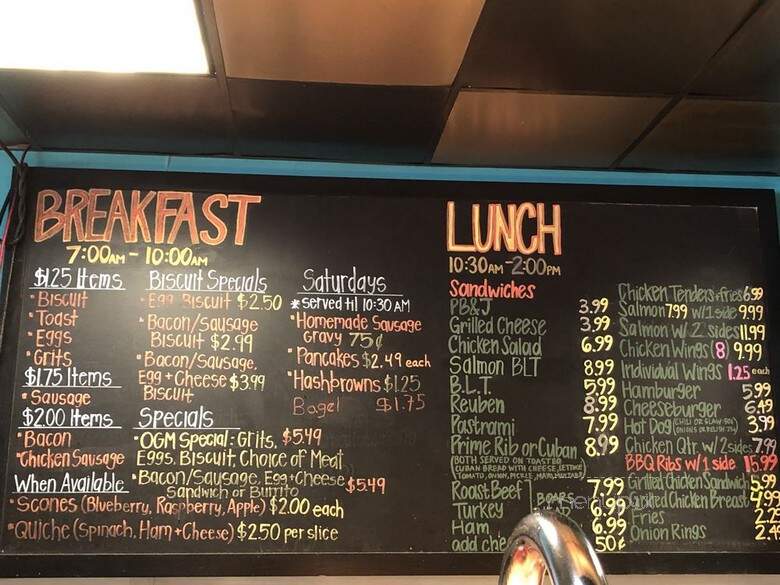 BREAKFAST
7:00AM - 10:00AM
$1.25 Items
• Biscuit
• Toast
• Eggs
• Grits
$1.75 Items
• Sausage
$2.00 Items
• Bacon
• Chicken Sausage
When Available
• Scones (Blueberry, Raspberry, Apple) $2.00 each
• Quiche (Spinach, Ham + Cheese) $2.50 per slice
Biscuit Specials
• Egg Biscuit $2.50
• Bacon/Sausage
Biscuit $2.99
• Bacon/Sausage,
Egg + Cheese $3.99
Biscuit
Specials
• OGM Special: Grits, $5.49
Eggs, Biscuit, Choice of Meat
• Bacon/Sausage, Egg + Cheese $5.49
Sandwich or Burrito
Saturdays
* served til 10:30 AM
• Homemade Sausage
Gravy 75¢
• Pancakes $2.49 each
• Hashbrowns $1.25
Bagel $1.75
LUNCH
10:30AM - 2:00PM
Sandwiches
PB&J 3.99
Grilled Cheese 3.99
Chicken Salad 6.99
Salmon BLT 8.99
B.L.T. 5.99
Reuben 8.99
Pastrami 7.99
Prime Rib or Cuban 8.99
(BOTH SERVED ON TOASTED
CUBAN BREAD WITH CHEESE, LETTUCE
TOMATO, ONION, PICKLE, MAYO, MUSTARD)
Roast Beef 7.99
Turkey 6.99
Ham 6.99
add che 50¢
Chicken Tenders + fries 6.99
Salmon 7.99 w/1 side 9.99
Salmon w/ 2 sides 11.99
Chicken Wings (8) 9.99
Individual Wings 1.25 each
Hamburger 5.99
Cheeseburger 6.49
Hot Dog (CHILI OR SLAW .50¢) 3.99
Chicken Qtr. w/2 sides 7.99
BBQ Ribs w/1 side 15.99
Grilled Chicken Sandwich 5.99
Chicken Breast 4.99
Fries
Onion Rings